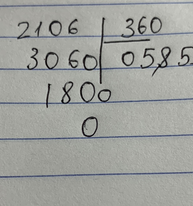 2106 360
3060 05,85
1800
0